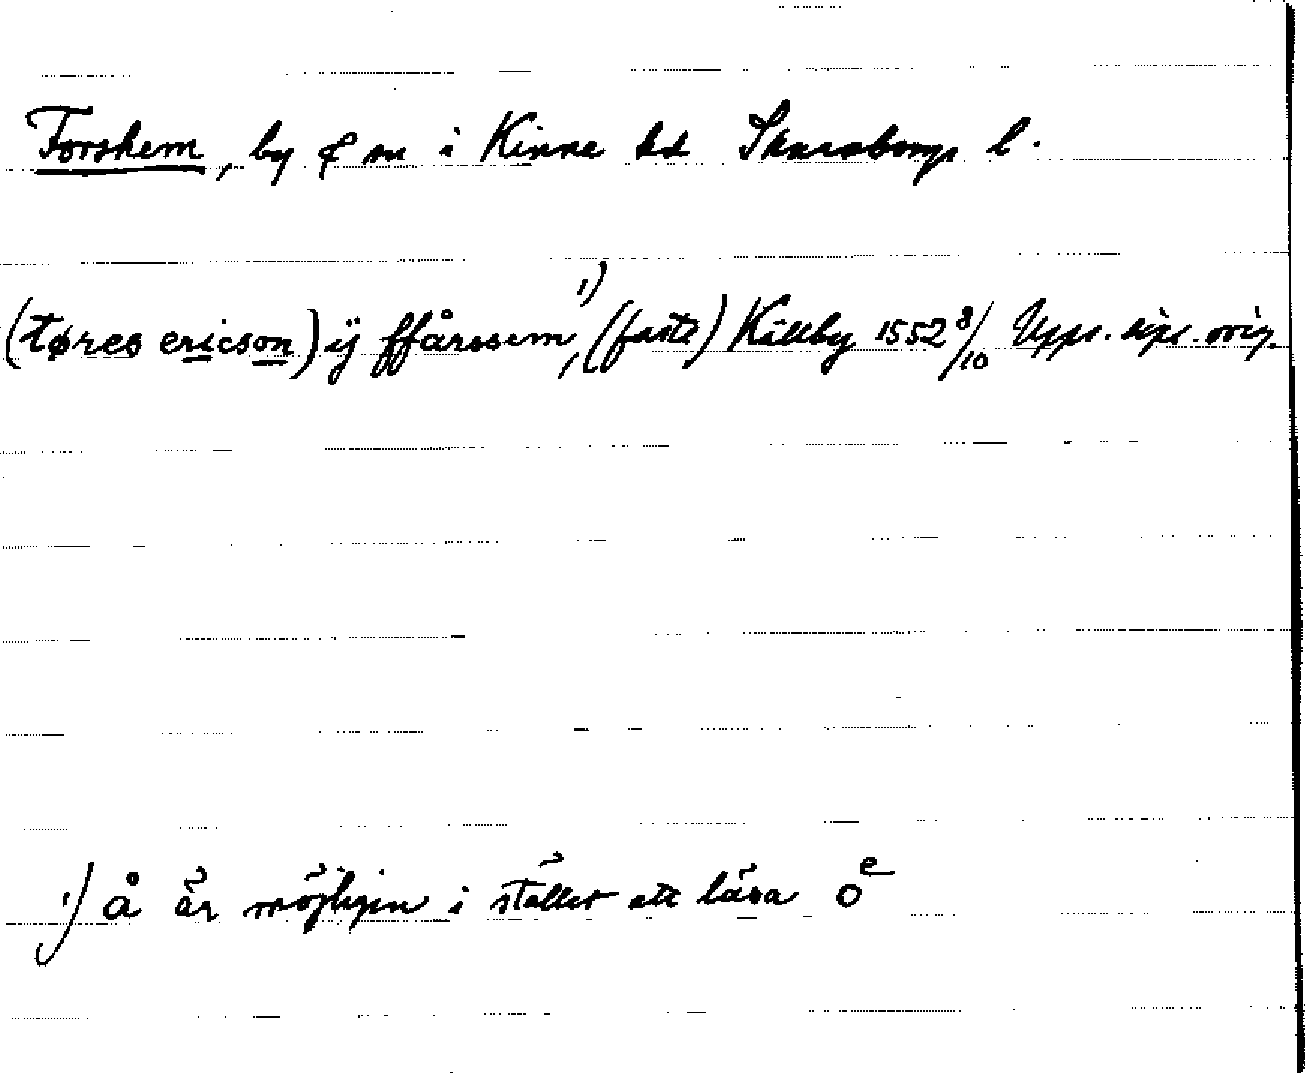 Forshem, by o sn i Kinne hd Skaraborgs l.
(tøres ericson) ÿ ffårssem,¹⁾ (faste) Källby 1552 8/10 Upps. dipl. orig.
¹⁾ å är möjligen i stället att läsa oͤ